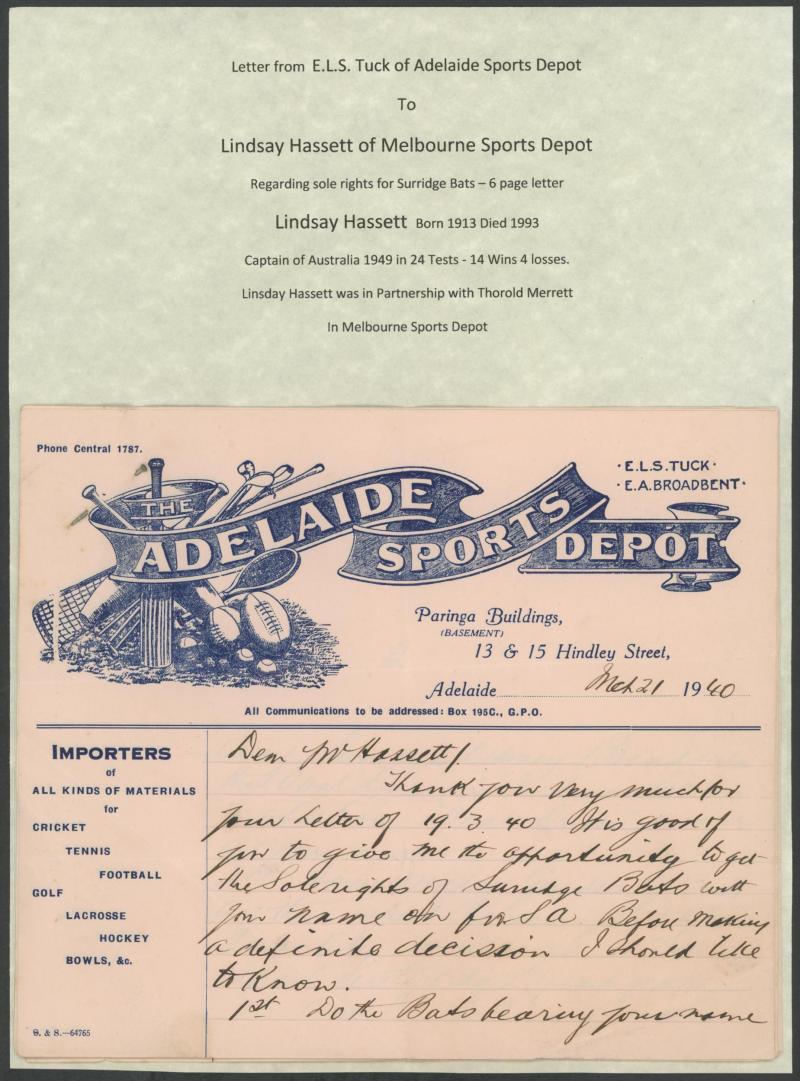 Letter from E.L.S. Tuck of Adelaide Sports Depot
To
Lindsay Hassett of Melbourne Sports Depot
Regarding sole rights for Surridge Bats – 6 page letter
Lindsay Hassett Born 1913 Died 1993
Captain of Australia 1949 in 24 Tests - 14 Wins 4 losses.
Linsday Hassett was in Partnership with Thorold Merrett
In Melbourne Sports Depot
Phone Central 1787.
· E.L.S. TUCK ·
· E.A. BROADBENT ·
THE
ADELAIDE SPORTS DEPOT
Paringa Buildings,
(BASEMENT)
13 & 15 Hindley Street,
Adelaide Mch 21 1940
All Communications to be addressed: Box 195C., G.P.O.
IMPORTERS
of
ALL KINDS OF MATERIALS
for
CRICKET
TENNIS
FOOTBALL
GOLF
LACROSSE
HOCKEY
BOWLS, &c.
S. & S.—64765
Dear Mr Hassett/
Thank you very much for
your letter of 19. 3. 40 It is good of
you to give me the opportunity to get
the Sole rights of Surridge Bats with
your name on for S A Before making
a definite decision I should like
to Know.
1st Do the Bats bearing your name